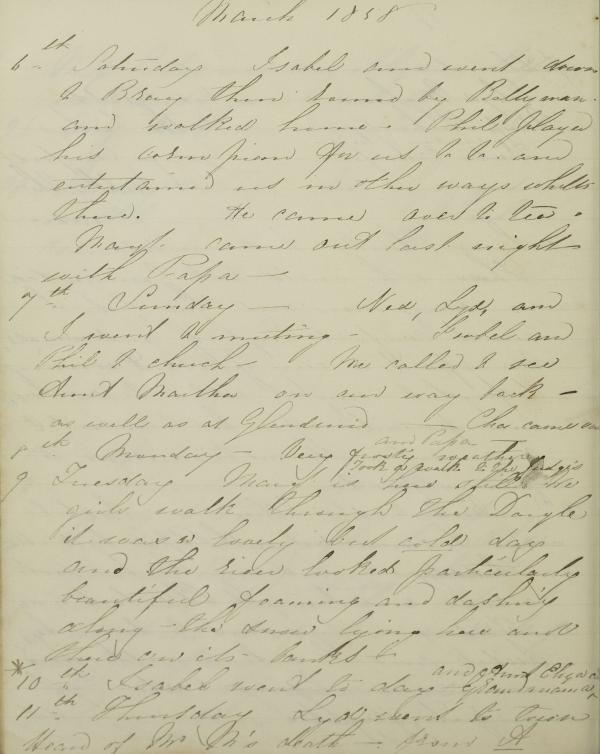 March 1858
6th Saturday Isabel and went down
to Bray then round by Bollyman
and walked home - Phil played
his cornopean for us to to. and
entertained us in other ways whilst
there. He came over to tea.
Margt. came out last night
with Papa —
7th Sunday — Ned, Lyd, and
I went to meeting - Isabel and
Phil to church - We called to see
Aunt Martha on our way back -
as well as at Glendruid — Chas came out
and Papa
8th Monday - Very frosty weather
Took a walk to the Judges
9 Tuesday Margt is here still We
girls walk through the Dargle
it was a lovely but cold day
and the river looked particularly
beautiful foaming and dashing
along - the snow lying here and
there on its banks -
and Aunt Eliza
10th Isabel went to day Grandmama
11th Thursday Lyd went to town
Heard of Mr M's death — from